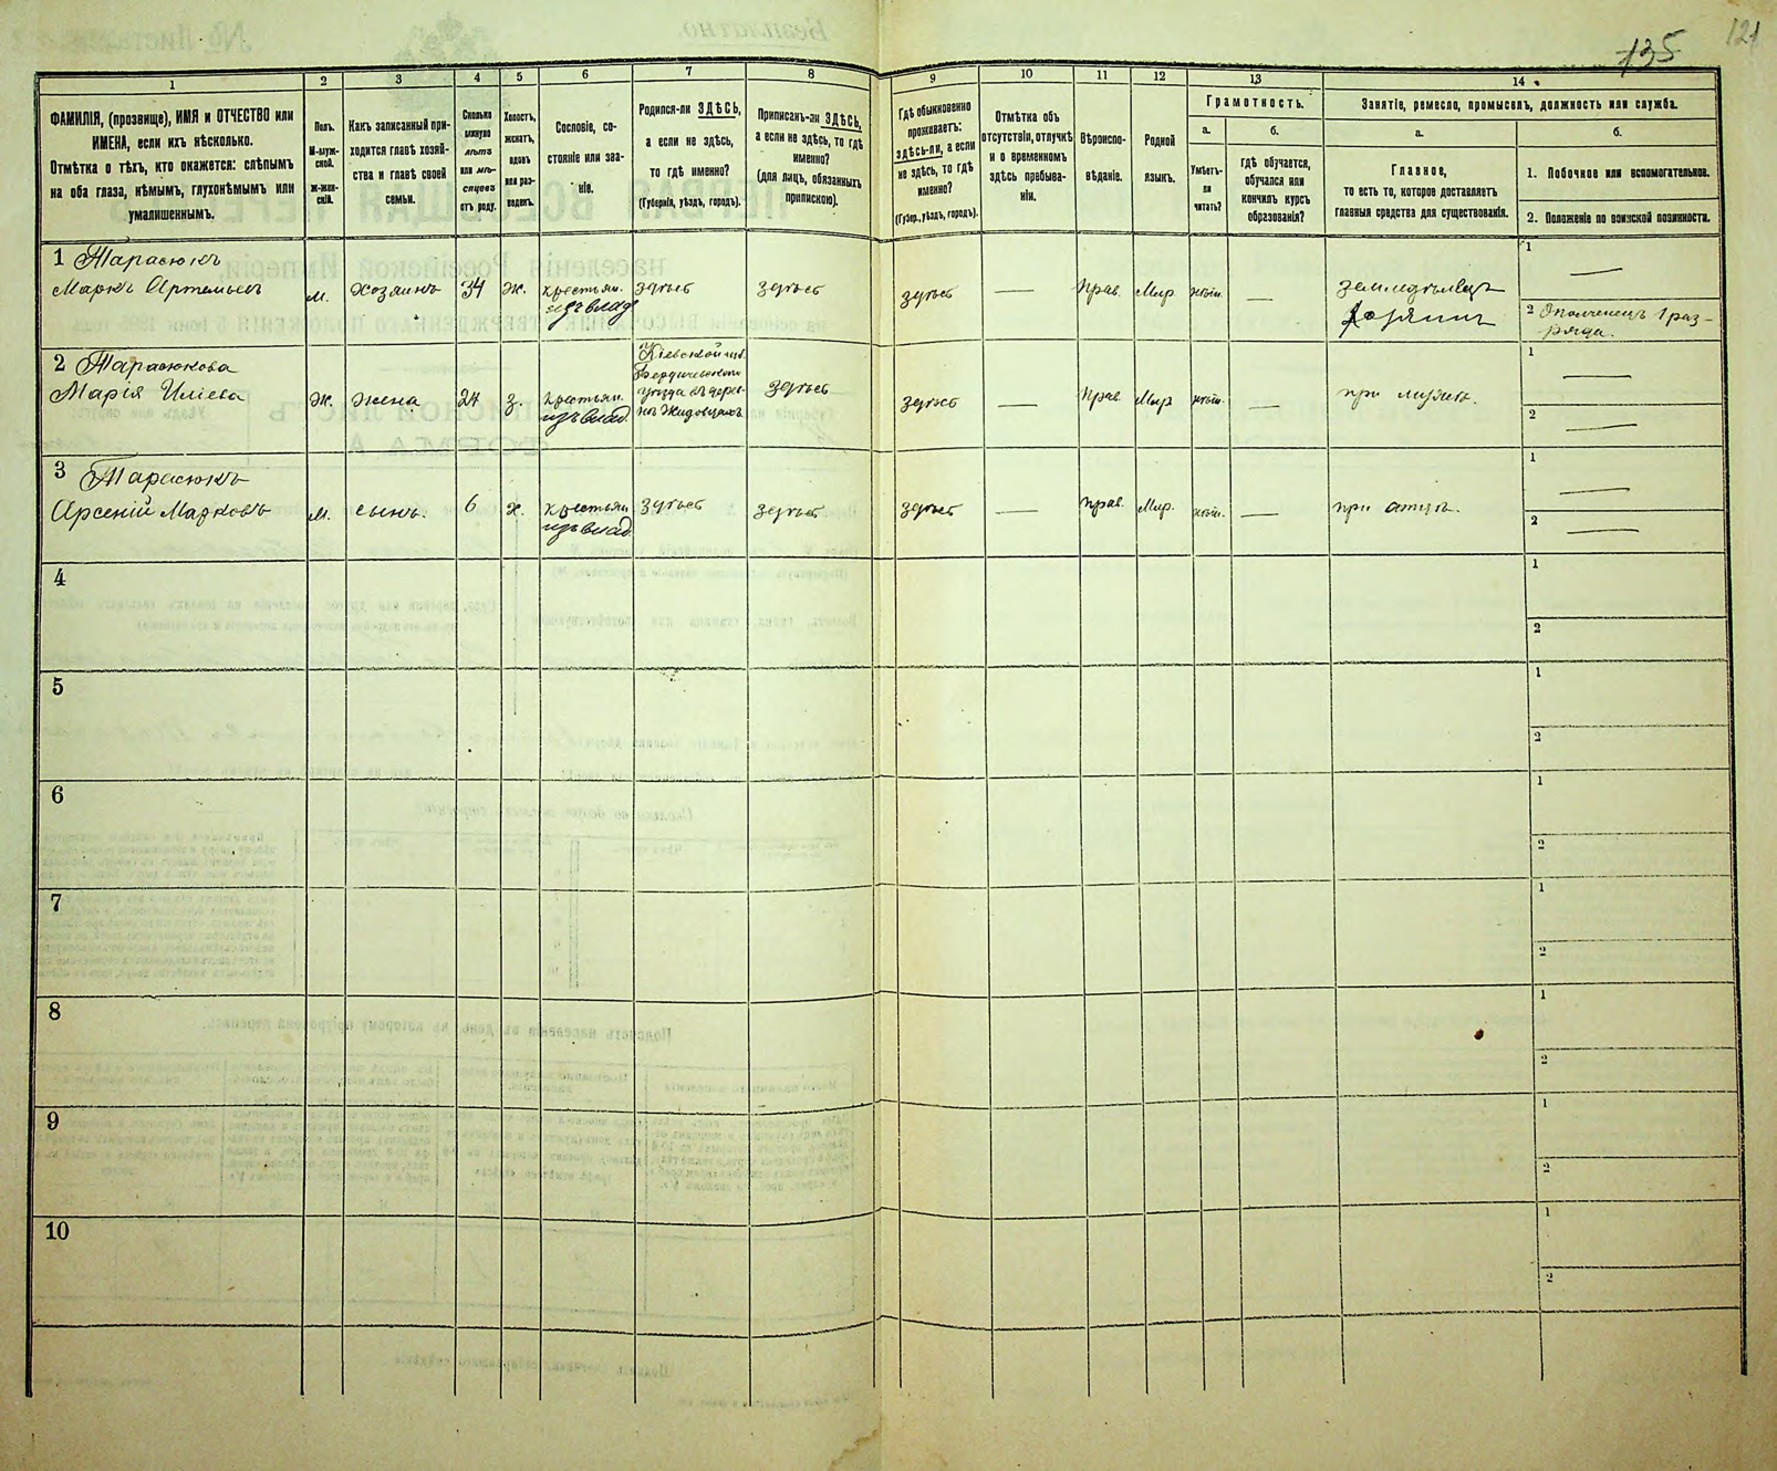 135
121
1
2
3
4
5
6
7
8
9
10
11
12
13
14
ФАМИЛІЯ, (прозвище), ИМЯ и ОТЧЕСТВО или
ИМЕНА, если ихъ нѣсколько.
Отмѣтка о тѣхъ, кто окажется: слѣпымъ
на оба глаза, нѣмымъ, глухонѣмымъ или
умалишеннымъ.
Полъ.
М-муж-
ской.
Ж-жен-
скій.
Какъ записанный при-
ходится главѣ хозяй-
ства и главѣ своей
семьи.
Сколько
минуло
лѣтъ
или мѣ-
сяцевъ
отъ роду.
Холостъ,
женатъ,
вдовъ
или раз-
веденъ.
Сословіе, со-
стояніе или зва-
ніе.
Родился-ли ЗДѢСЬ,
а если не здѣсь,
то гдѣ именно?
(Губернія, уѣздъ, городъ).
Приписанъ-ли ЗДѢСЬ,
а если не здѣсь, то гдѣ
именно?
(для лицъ, обязанныхъ
припискою).
Гдѣ обыкновенно
проживаетъ:
здѣсь-ли, а если
не здѣсь, то гдѣ
именно?
(Губер., уѣздъ, городъ).
Отмѣтка объ
отсутствіи, отлучкѣ
и о временномъ
здѣсь пребыва-
ніи.
Вѣроиспо-
вѣданіе.
Родной
языкъ.
Грамотность.
а.
Умѣетъ-
ли
читать?
б.
гдѣ обучается,
обучался или
кончилъ курсъ
образованія?
Занятіе, ремесло, промыселъ, должность или служба.
а.
Главное,
то есть то, которое доставляетъ
главныя средства для существованія.
б.
1. Побочное или вспомогательное.
2. Положеніе по воинской повинности.
1 Тарасюкъ
Маркъ Артемьевъ
м.
хозяинъ
34
ж.
крестьян.
изъ влад.
здѣсь
здѣсь
здѣсь
—
Прав.
Мар.
—
земледѣлецъ
хозяинъ
1 —
2 Ополченецъ 1 раз-
ряда.
2 Тарасюкова
Марія Иліева
ж.
жена
24
з.
крестьян.
изъ влад.
Кіевской губ.
Бердичевскаго
уѣзда въ дерев-
нѣ Жидовцахъ
здѣсь
здѣсь
—
Прав.
Мар.
—
при мужѣ.
1 —
2 —
3 Тарасюкъ
Арсеній Марковъ
м.
сынъ.
6
х.
крестьян.
изъ влад.
здѣсь
здѣсь
здѣсь
—
прав.
Мар.
—
при отцѣ.
1 —
2 —
4
1
2
5
1
2
6
1
2
7
1
2
8
1
2
9
1
2
10
1
2